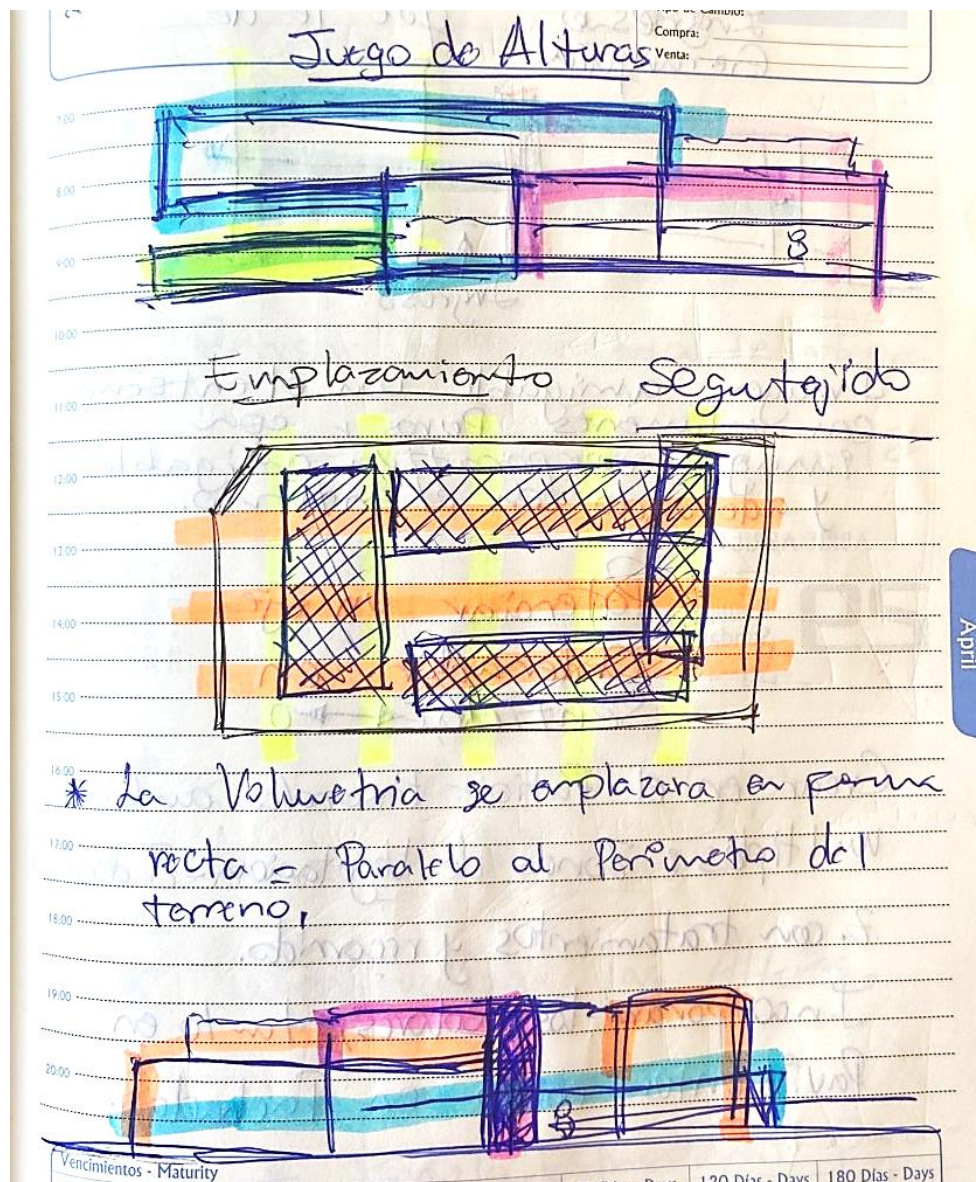 Tipo de Cambio:
Compra:
Venta:
Juego de Alturas
7:00
8:00
9:00
10:00
Emplazamiento Segutejido
11:00
12:00
13:00
14:00
April
15:00
16:00
* La Volumetria se emplazara en forma
17:00
recta = Paralelo al Perimetro del
terreno,
18:00
19:00
20:00
Vencimientos - Maturity
Days 120 Días - Days 180 Días - Days